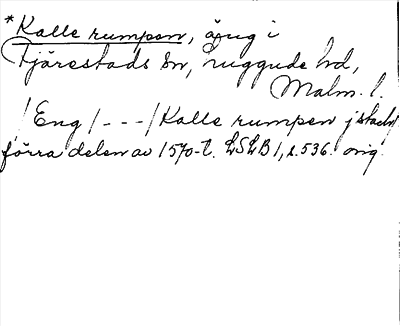 *Kalle rumpen, äng i
Tjärestads sn, Luggude hd,
Malm. l.
/Eng/---/Kalle rumpen j stads
förra delen av 1570-t. LSLB 1, s. 536. orig.